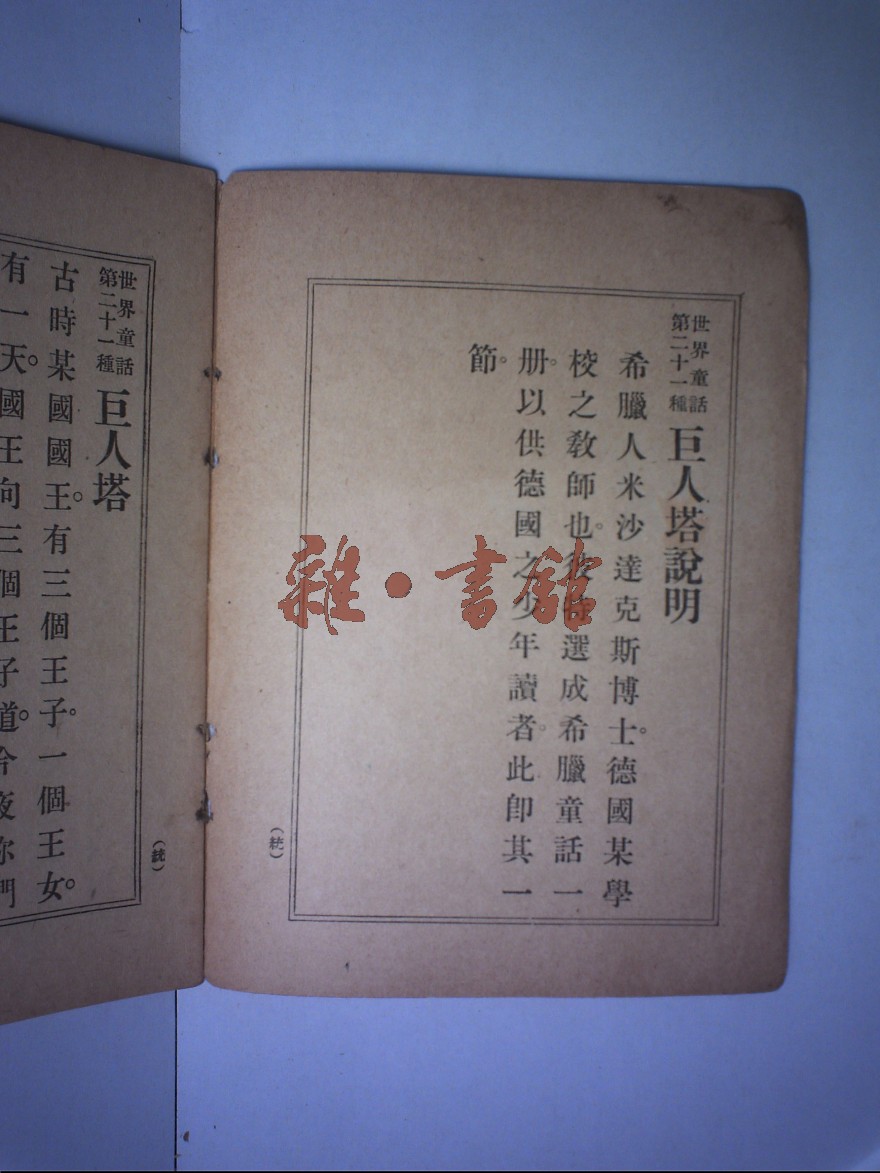 世界童話
第二十一種
巨人塔說明
希臘人米沙達克斯博士。德國某學
校之教師也。後 選成希臘童話一
册。以供德國之少年讀者。此卽其一
節。
(統)
世界童話
第二十一種
巨人塔
古時某國國王。有三個王子。一個王女。
有一天。國王向三個王子道。今夜你們
(統)
雜·書館